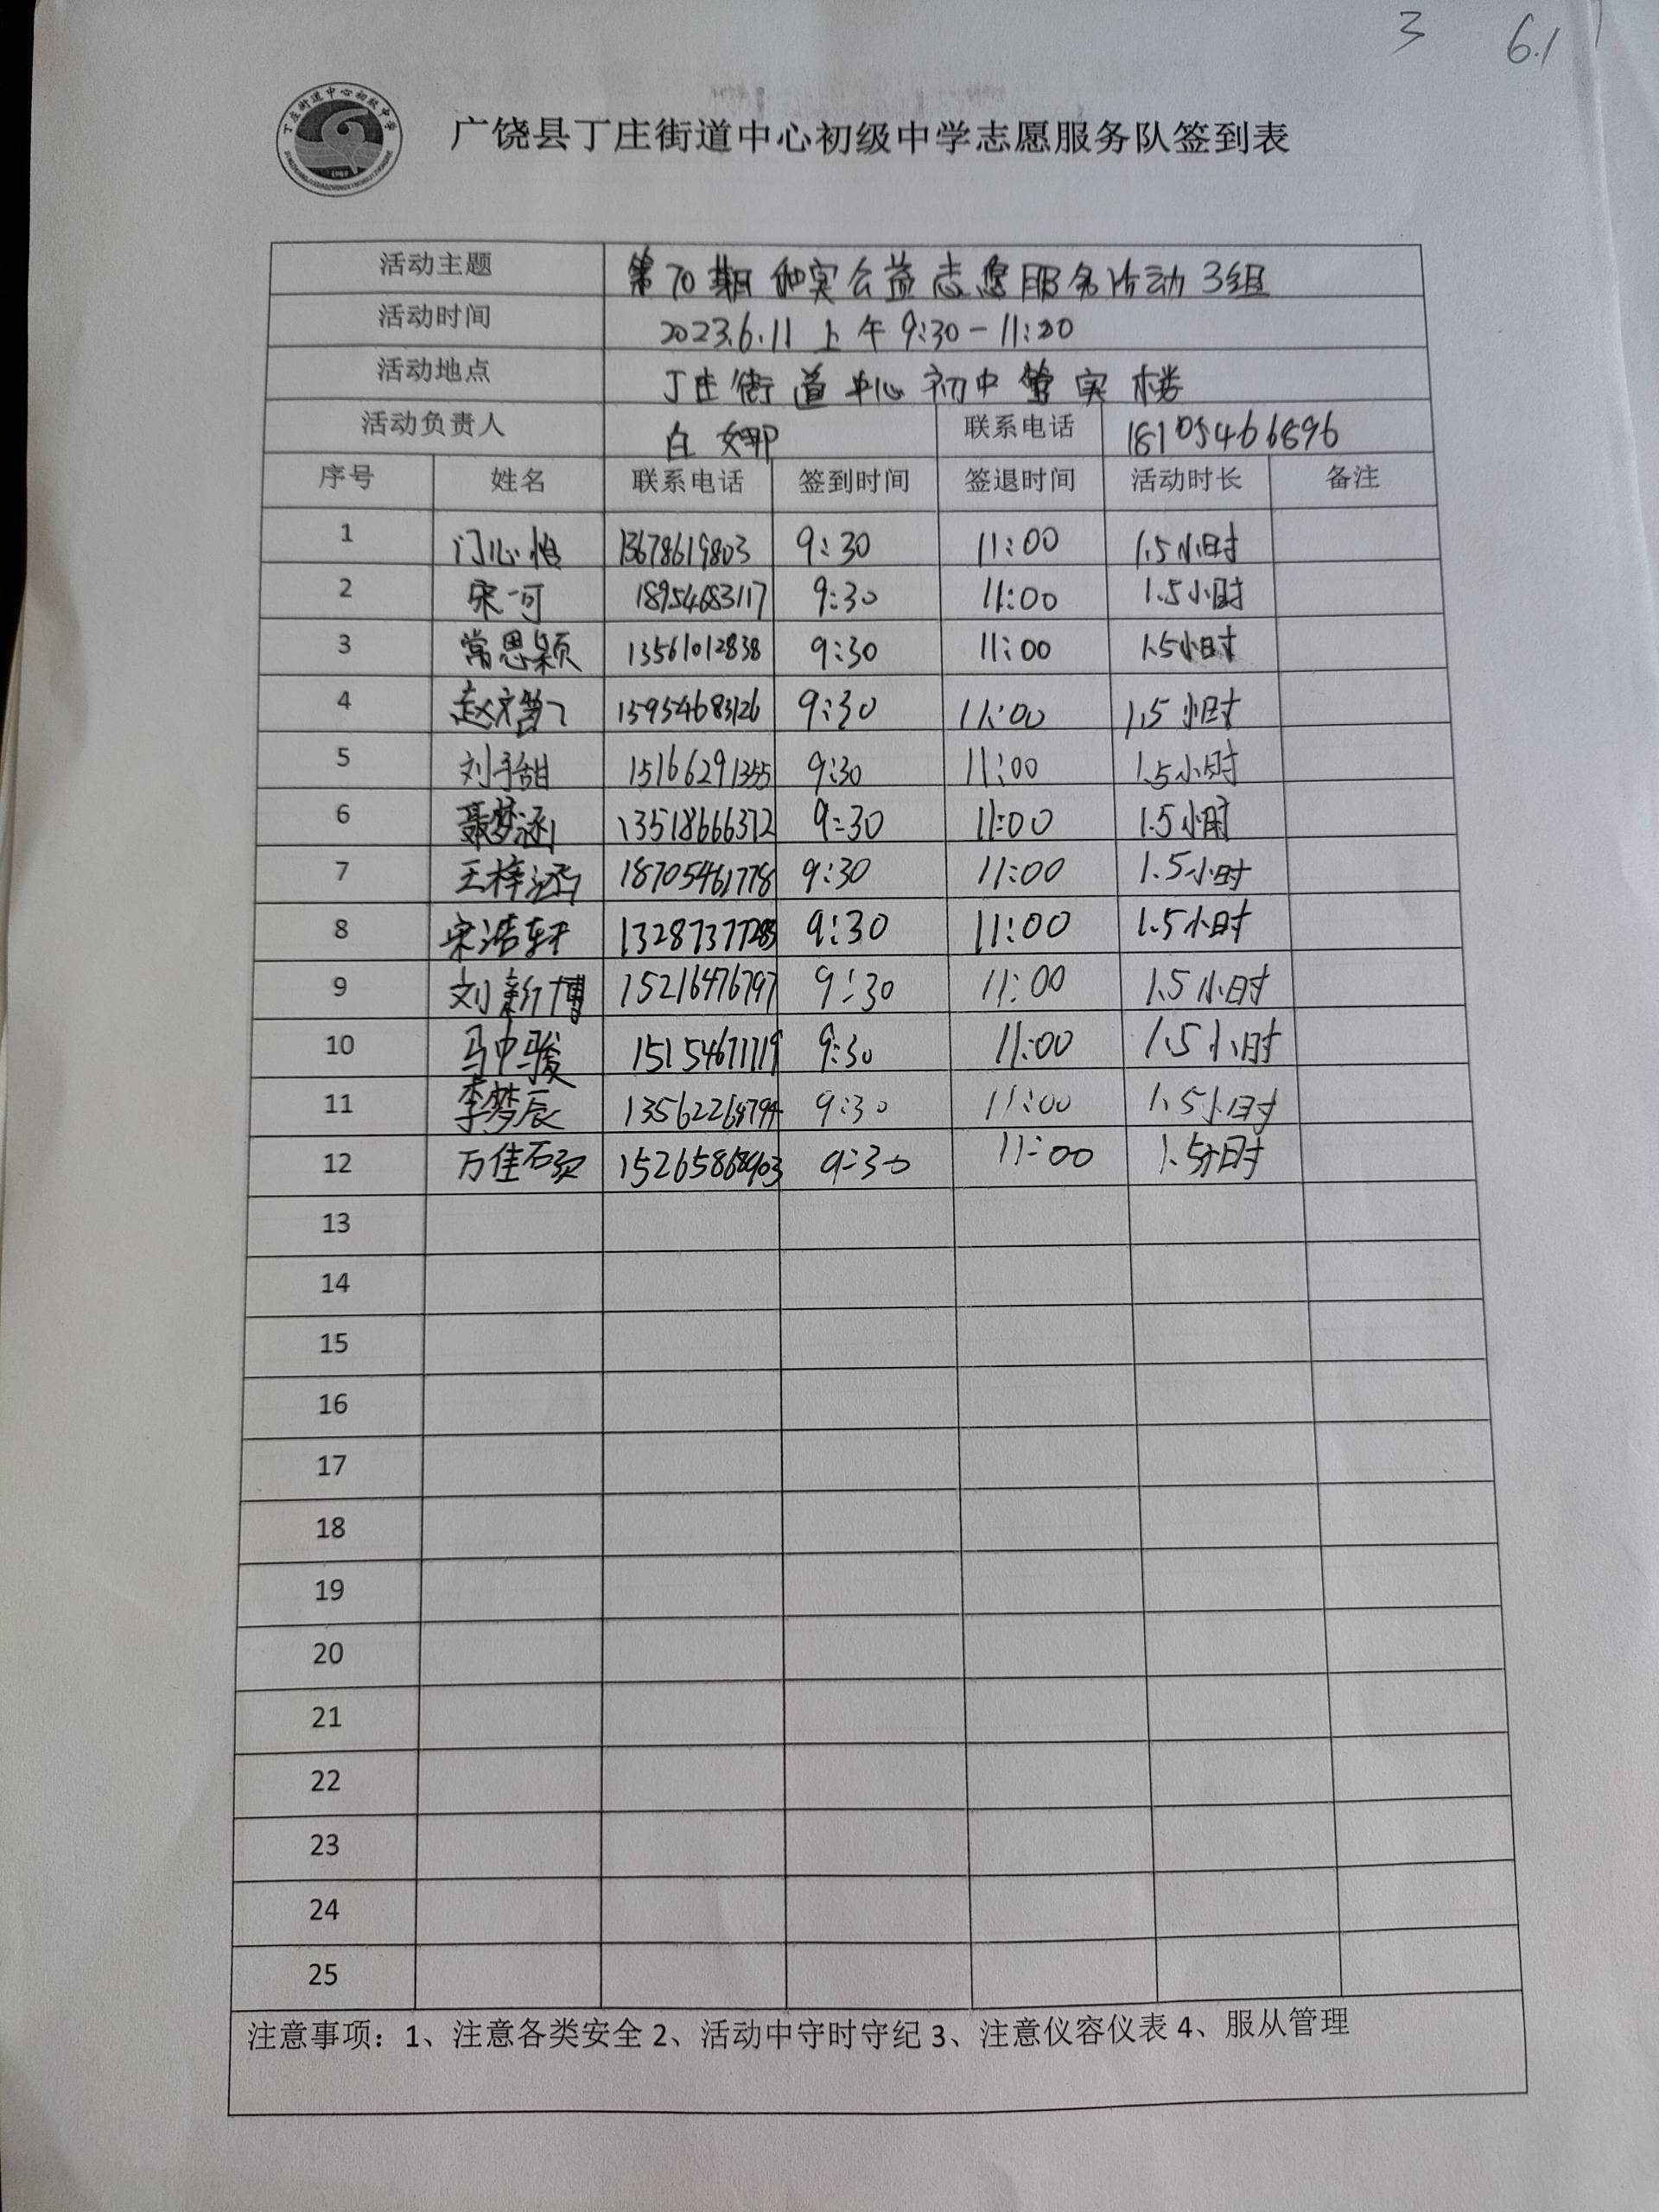 3 6.1
丁庄街道中心初级中学
广饶县丁庄街道中心初级中学志愿服务队签到表
活动主题 第70期和实公益志愿服务活动3组
活动时间 2023.6.11 上午 9:30-11:20
活动地点 丁庄街道中心初中 实楼
活动负责人 白娜 联系电话 18105466896
序号 姓名 联系电话 签到时间 签退时间 活动时长 备注
1 门心怡 13678619803 9:30 11:00 1.5小时
2 宋一可 18954683117 9:30 11:00 1.5小时
3 常思颖 13561012838 9:30 11:00 1.5小时
4 赵 13954683126 9:30 11:00 1.5小时
5 刘 甜 15166291355 9:30 11:00 1.5小时
6 聂梦涵 13518666372 9:30 11:00 1.5小时
7 王梓涵 18705461778 9:30 11:00 1.5小时
8 宋浩轩 13287377285 9:30 11:00 1.5小时
9 刘新博 15216476797 9:30 11:00 1.5小时
10 马中骏 15154671719 9:30 11:00 1.5小时
11 李梦辰 13562268794 9:30 11:00 1.5小时
12 万佳硕 15265868903 9:30 11:00 1.5小时
13
14
15
16
17
18
19
20
21
22
23
24
25
注意事项：1、注意各类安全 2、活动中守时守纪 3、注意仪容仪表 4、服从管理